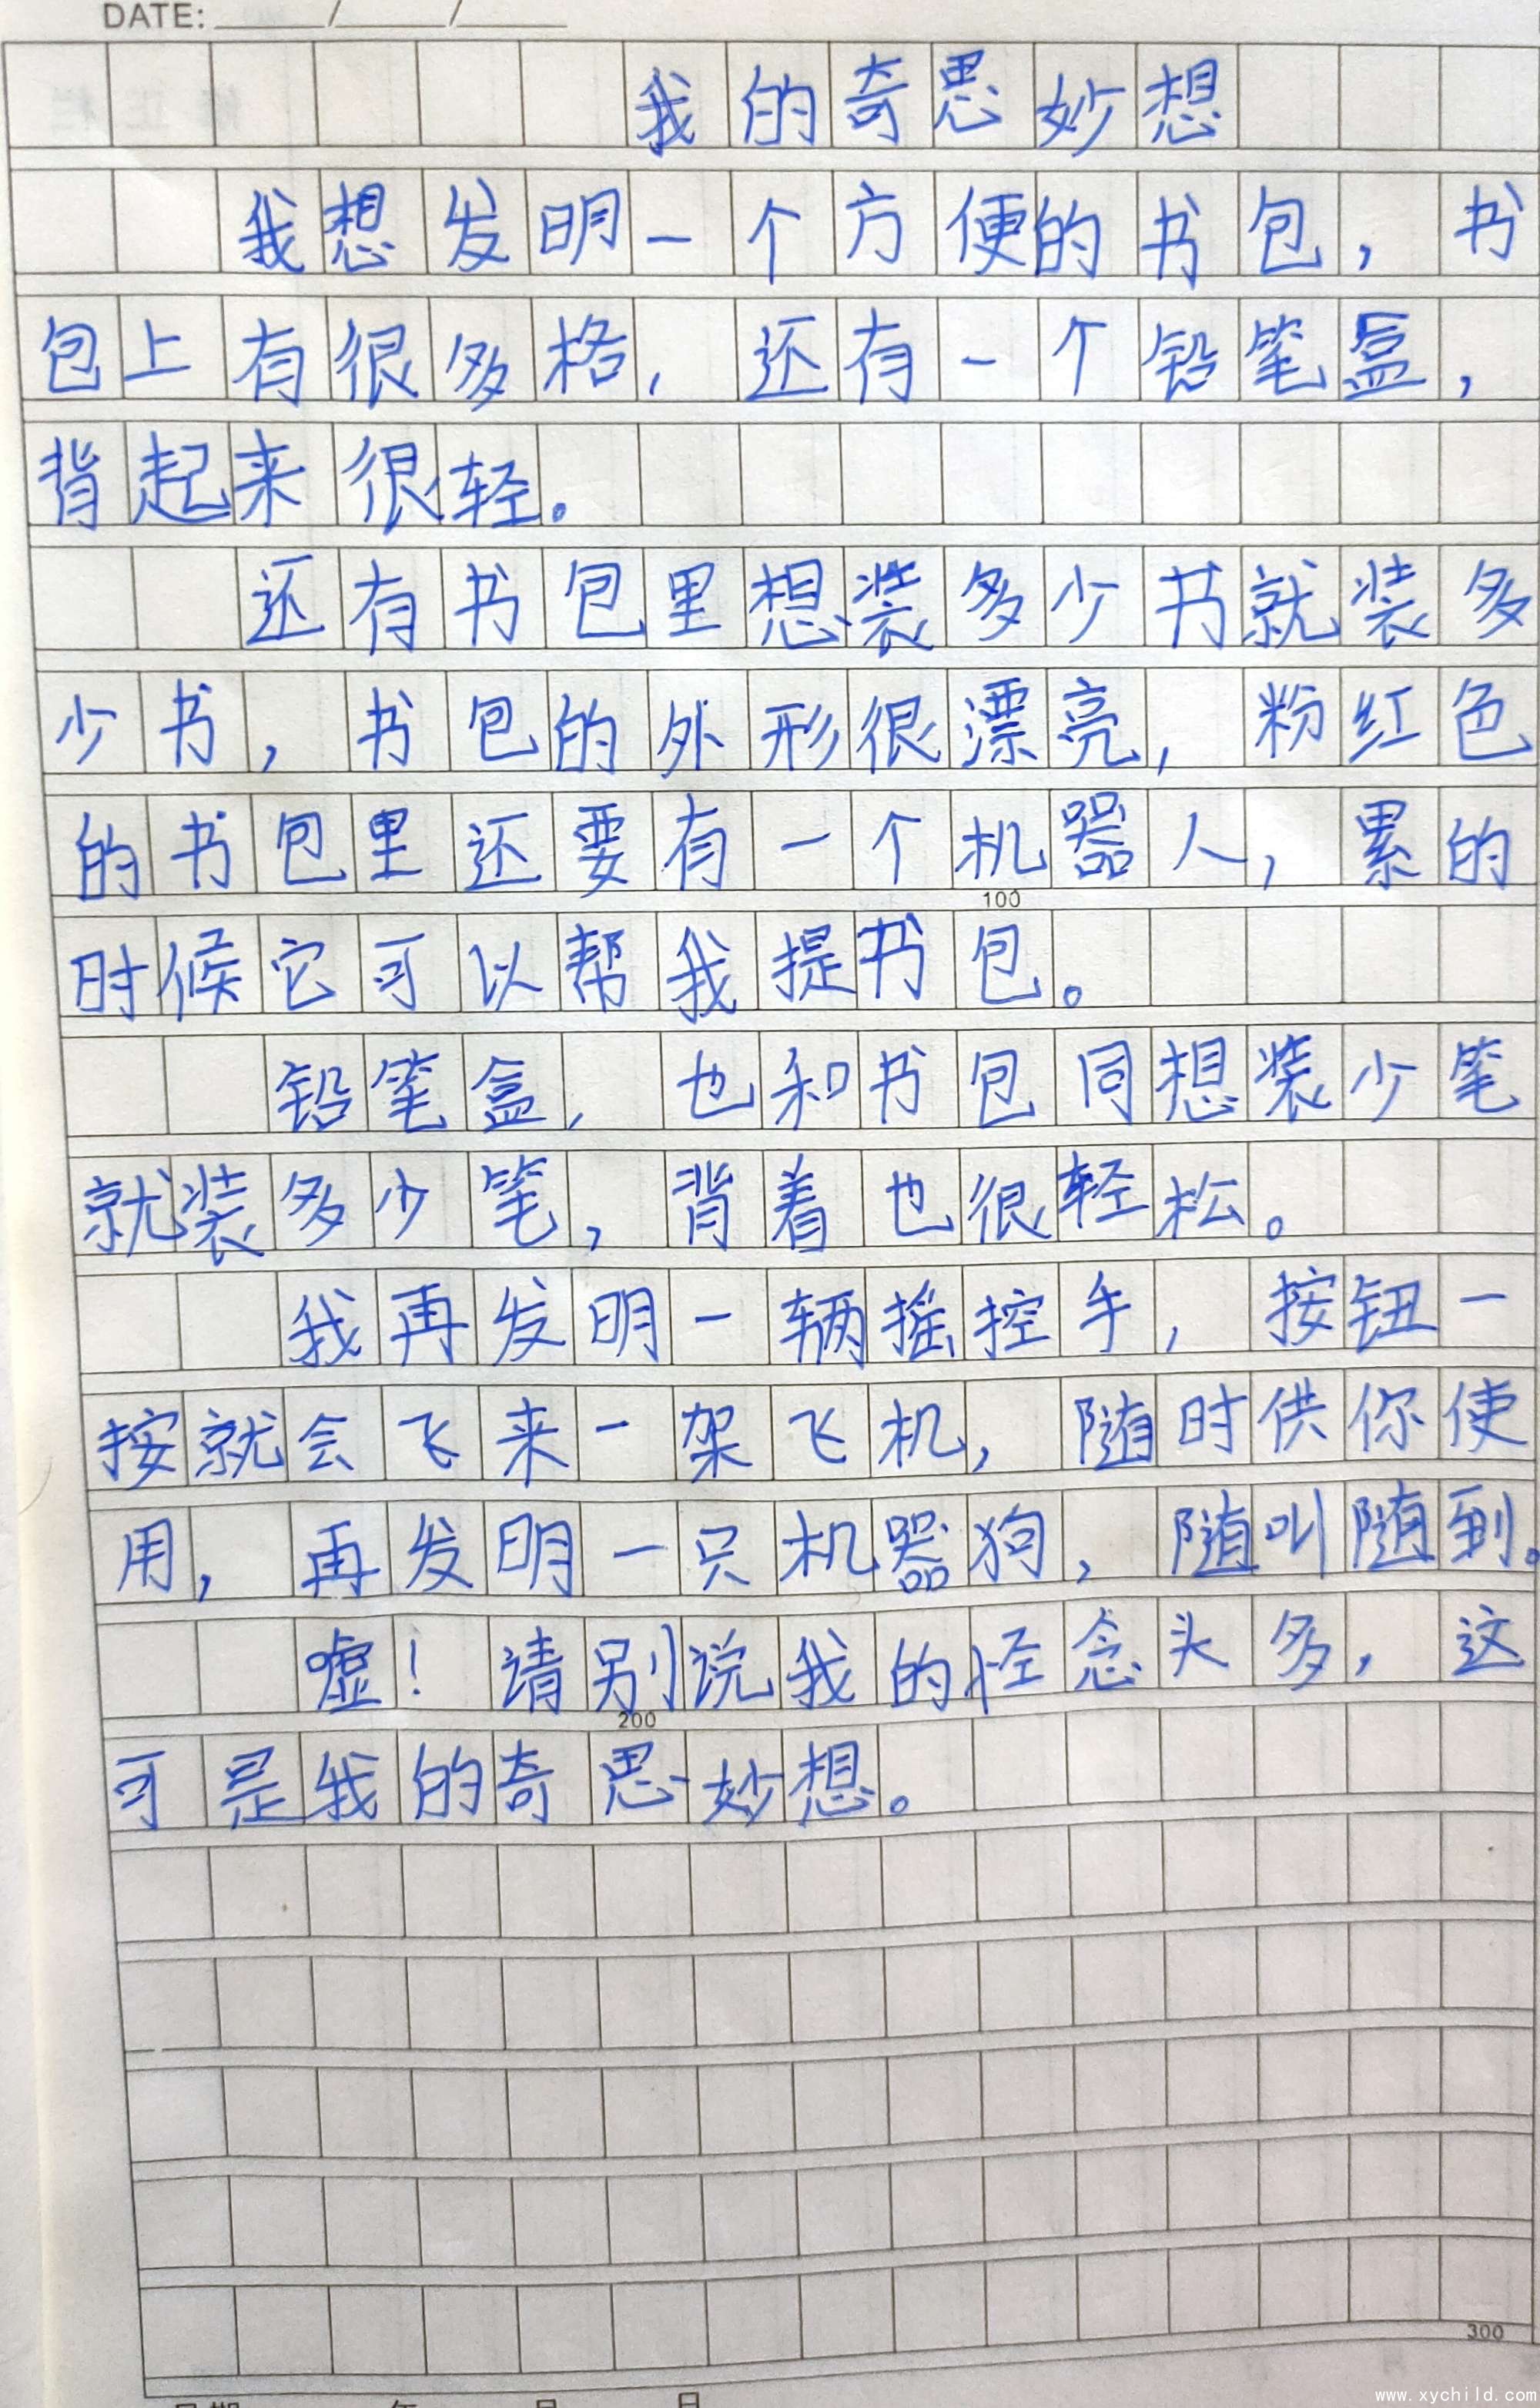 DATE: ____/____/____
我的奇思妙想
我想发明一个方便的书包，书
包上有很多格，还有一个铅笔盒，
背起来很轻。
还有书包里想装多少书就装多
少书，书包的外形很漂亮，粉红色
的书包里还要有一个机器人，累的
100
时候它可以帮我提书包。
铅笔盒，也和书包同想装少笔
就装多少笔，背着也很轻松。
我再发明一辆摇控手，按钮一
按就会飞来一架飞机，随时供你使
用，再发明一只机器狗，随叫随到。
嘘！请别说我的怪念头多，这
200
可是我的奇思妙想。
300
www.xychild.com